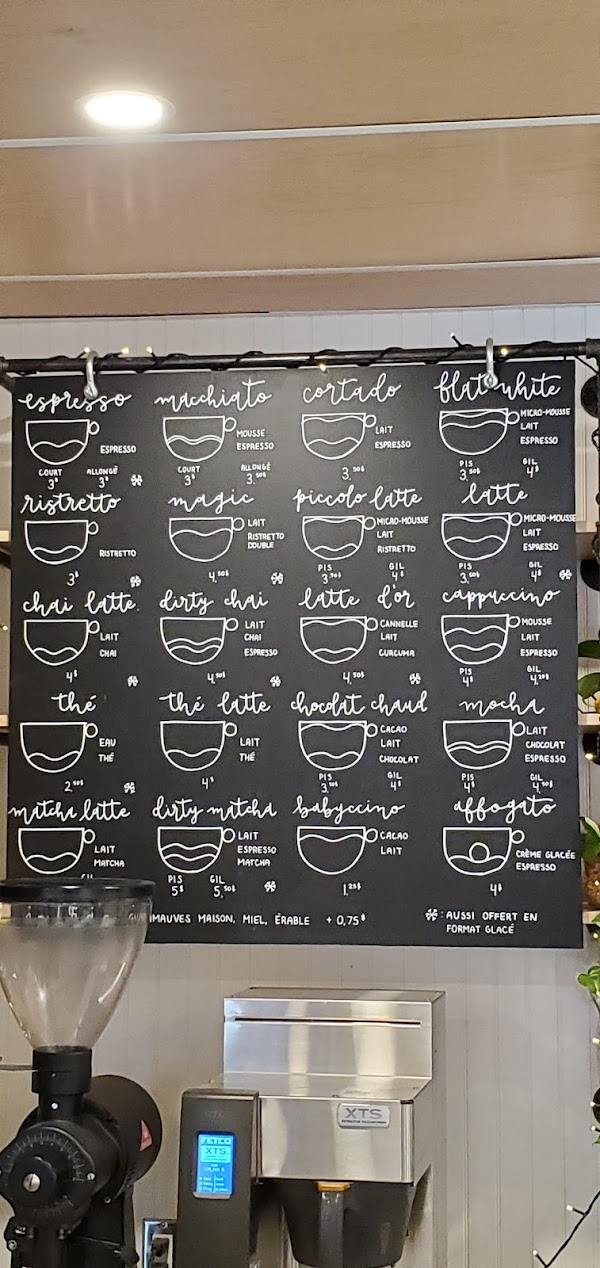 espresso
ESPRESSO
COURT ALLONGÉ
3$ 3$
macchiato
MOUSSE
ESPRESSO
COURT ALLONGÉ
3$ 3,50$
cortado
LAIT
ESPRESSO
3,50$
flat white
MICRO-MOUSSE
LAIT
ESPRESSO
PIS GIL
3,50$ 4$
ristretto
RISTRETTO
3$
magic
LAIT
RISTRETTO
DOUBLE
4,50$
piccolo latte
MICRO-MOUSSE
LAIT
RISTRETTO
PIS GIL
4$
latte
MICRO-MOUSSE
LAIT
ESPRESSO
PIS GIL
3,50$ 4$
chai latte
LAIT
CHAI
4$
dirty chai
LAIT
CHAI
ESPRESSO
4,50$
latte d'or
CANNELLE
LAIT
CURCUMA
4,50$
cappuccino
MOUSSE
LAIT
ESPRESSO
PIS GIL
4$
thé
EAU
THÉ
2,50$
thé latte
LAIT
THÉ
4$
chocolat chaud
CACAO
LAIT
CHOCOLAT
PIS GIL
3,50$ 4$
mocha
LAIT
CHOCOLAT
ESPRESSO
PIS GIL
4$ 4,50$
matcha latte
LAIT
MATCHA
dirty matcha
LAIT
ESPRESSO
MATCHA
PIS GIL
5$ 5,50$
babyccino
CACAO
LAIT
1,25$
affogato
CRÈME GLACÉE
ESPRESSO
4$
IMAUVES MAISON, MIEL, ÉRABLE + 0,75$
: AUSSI OFFERT EN
FORMAT GLACÉ
XTS
FETCO
XTS